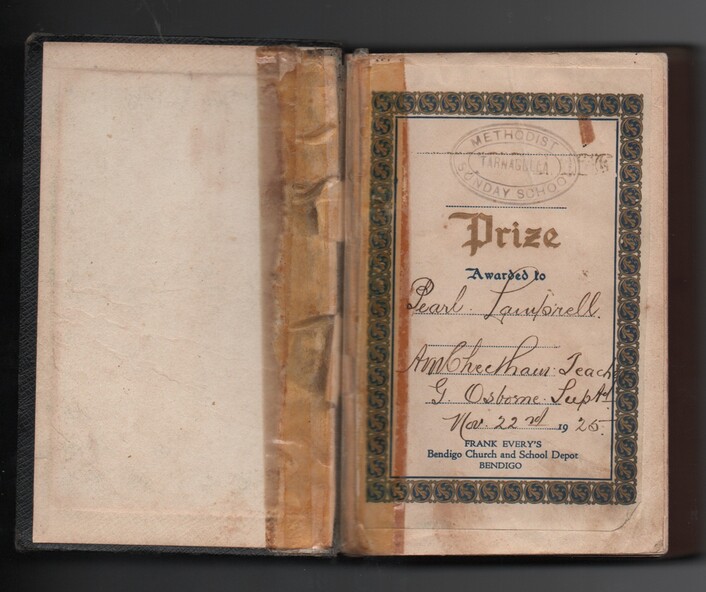 METHODIST
TARNAGULLA
SUNDAY SCHOOL
Prize
Awarded to
Pearl Lamprell.
A M Cheetham Teach
G. Osborne Supt
Nov. 22nd 1925.
FRANK EVERY'S
Bendigo Church and School Depot
BENDIGO